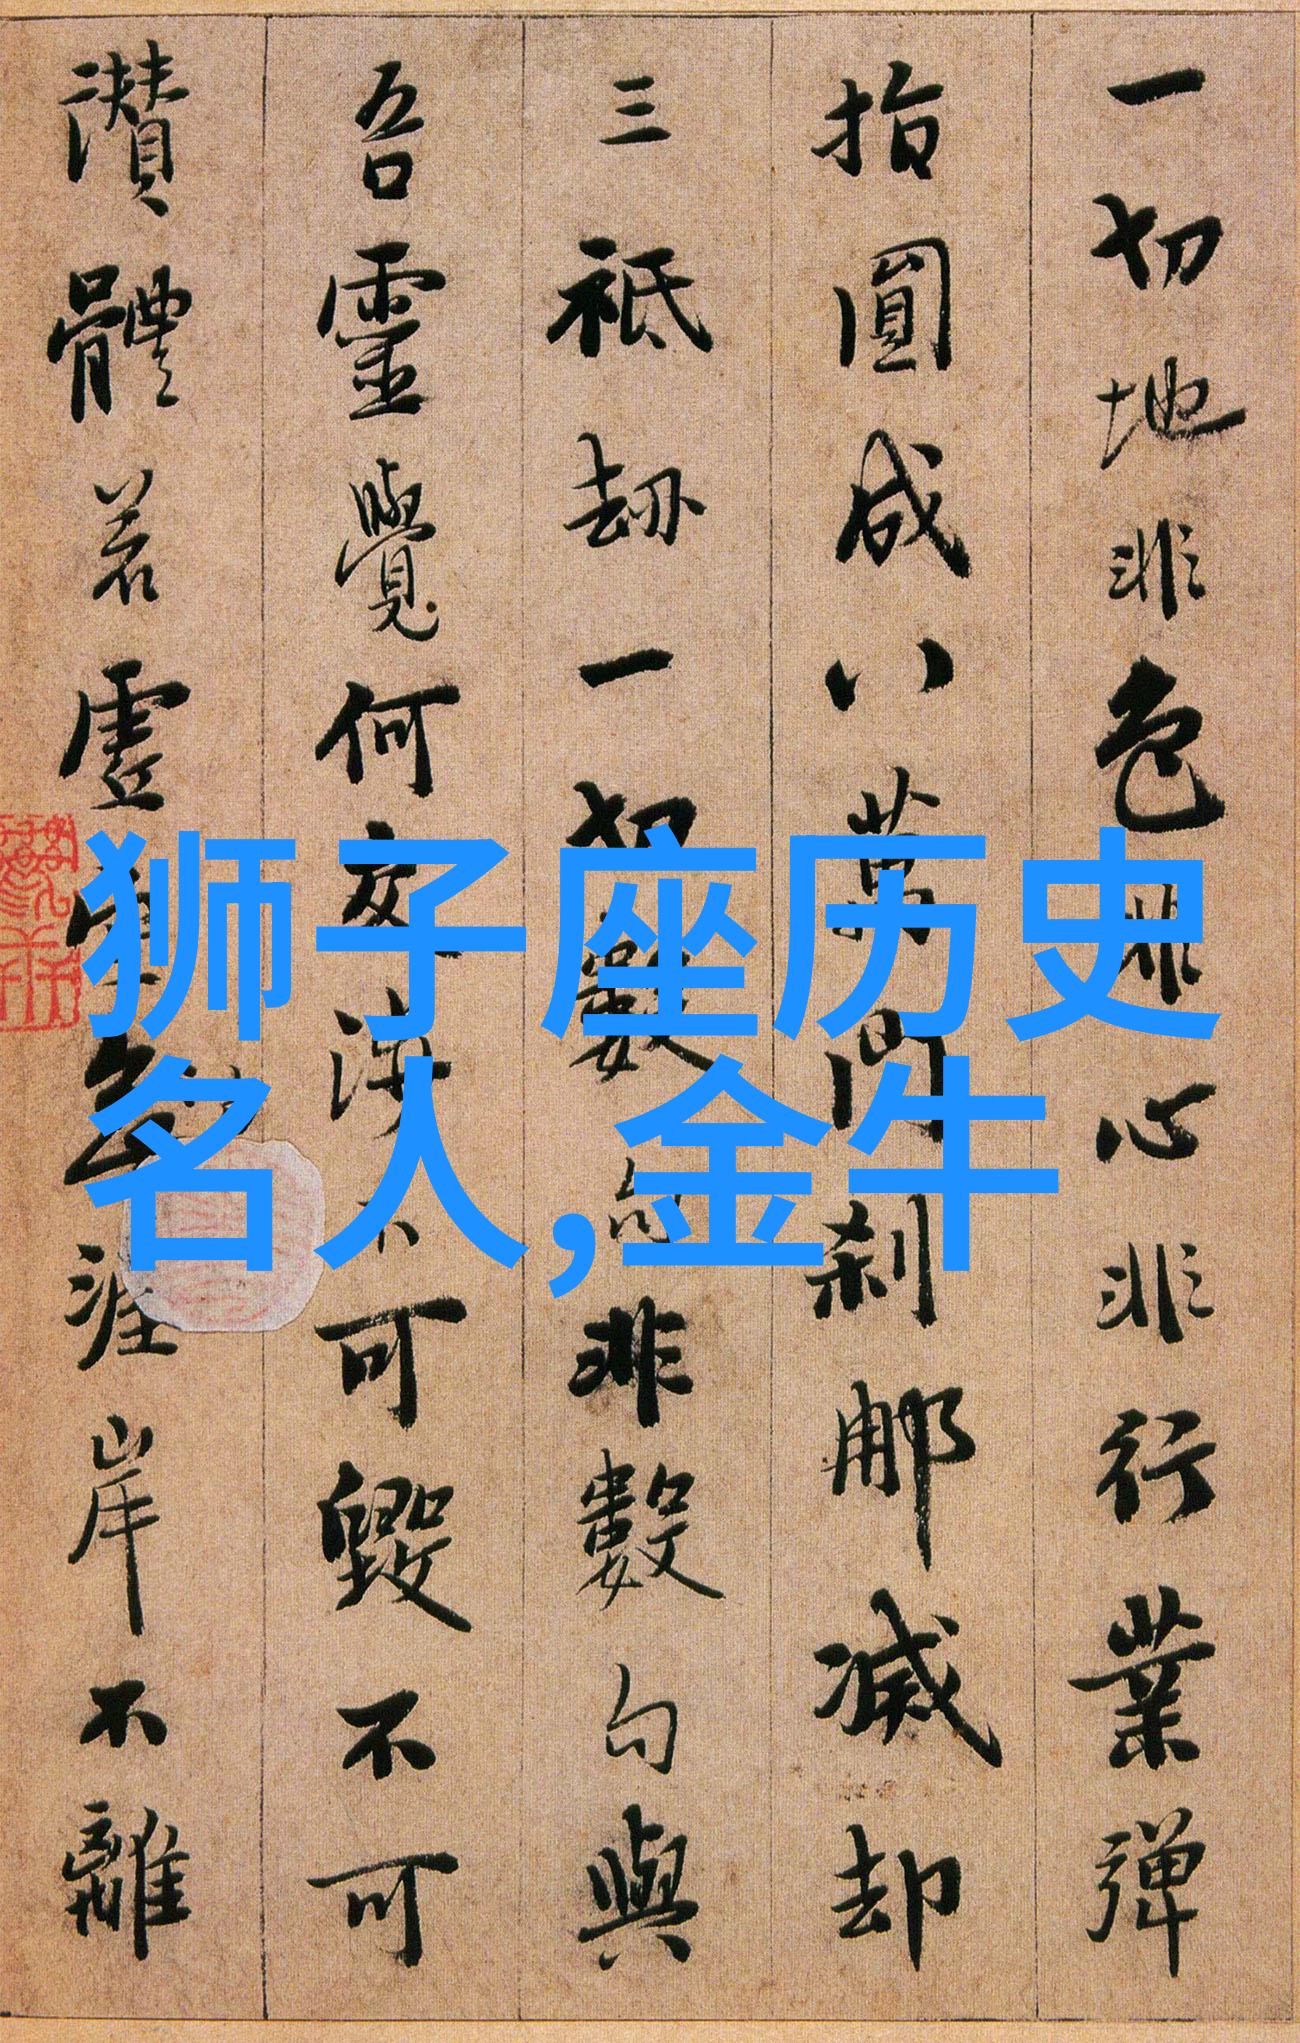 一切地非色非心非行業彈
指圓成八萬門刹那滅却
三祇劫一切數句非數句與
吾靈覺何交涉不可毀不可
讚體若虛空勿涯岸不離
狮子座历史
名人,金牛